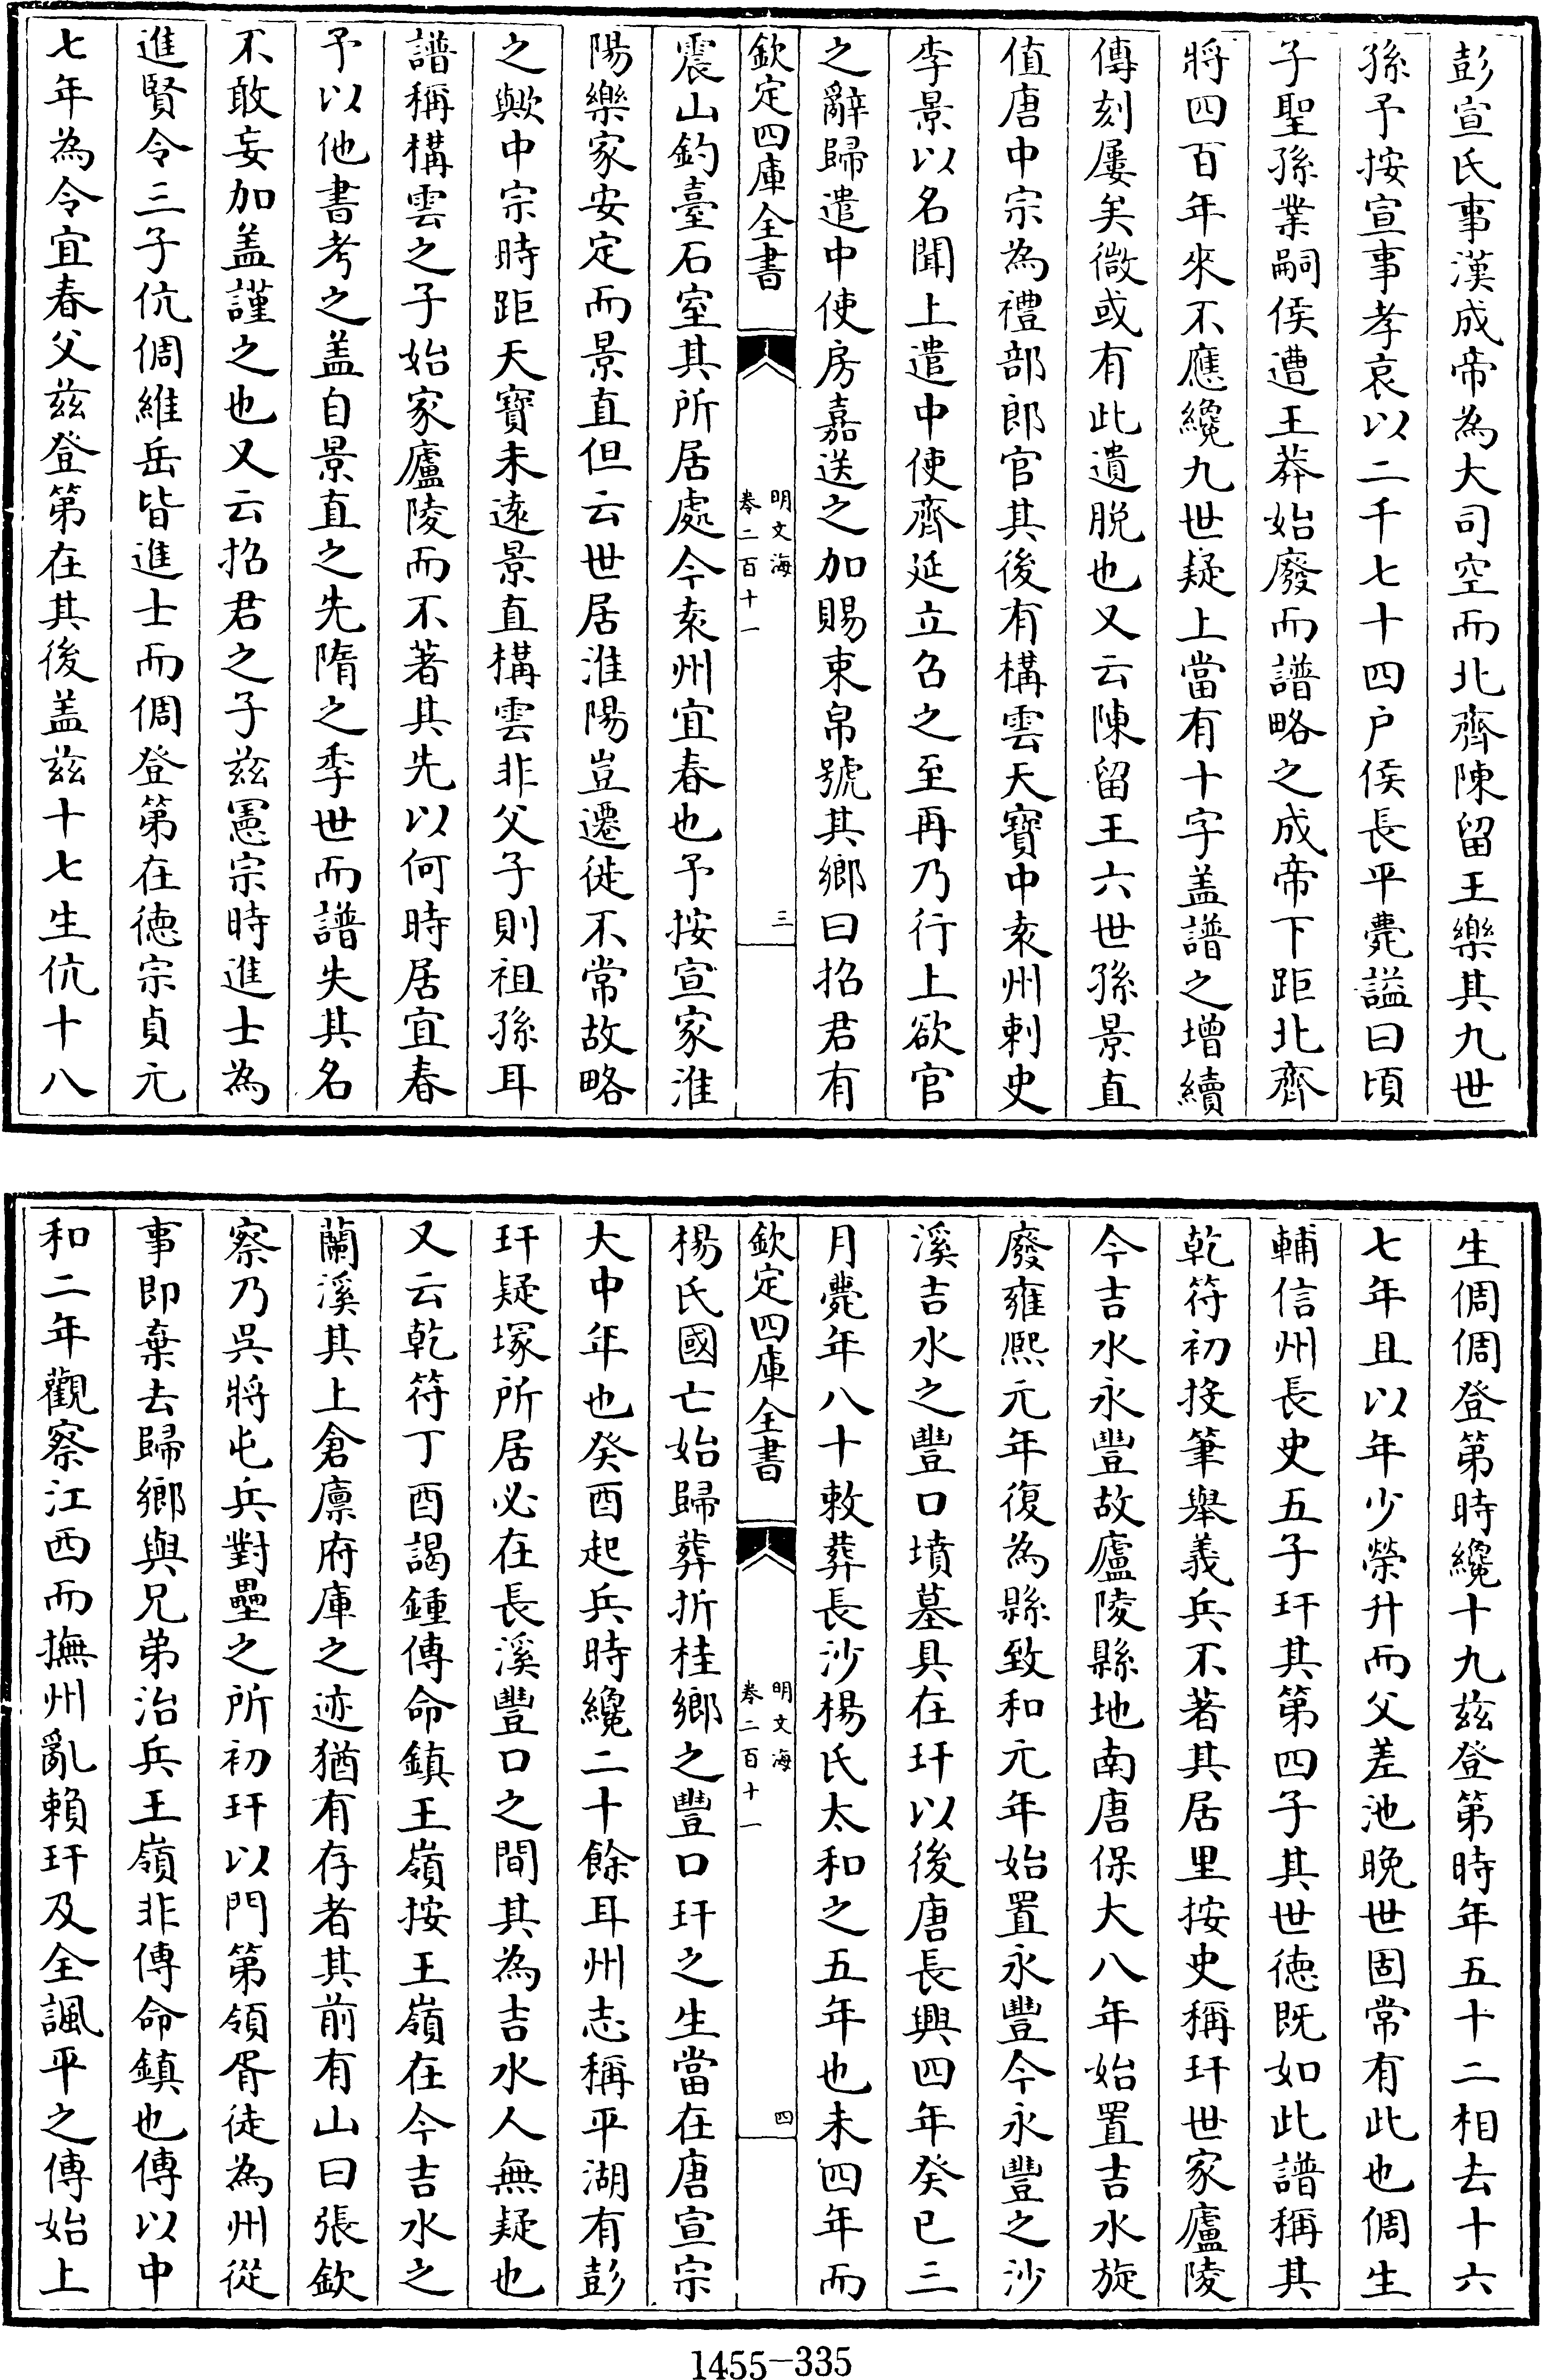 彭宣氏事漢成帝為大司空而北齊陳留王樂其九世
孫予按宣事孝哀以二千七十四户侯長平薨謚曰頃
子聖孫業嗣侯遭王莽始廢而譜略之成帝下距北齊
將四百年來不應纔九世疑上當有十字盖譜之增續
傳刻屢矣㣲或有此遺脱也又云陳留王六世孫景直
值唐中宗為禮部郎官其後有構雲天寶中袁州刺史
李景以名聞上遣中使齊延立召之至再乃行上欲官
之辭歸遣中使房嘉送之加賜束帛號其鄉曰招君有
欽定四庫全書
明文海
卷二百十一
三
震山釣臺石室其所居處今袁州宜春也予按宣家淮
陽樂家安定而景直但云世居淮陽豈遷徙不常故略
之歟中宗時距天寶未遠景直構雲非父子則祖孫耳
譜稱構雲之子始家廬陵而不著其先以何時居宜春
予以他書考之盖自景直之先隋之季世而譜失其名
不敢妄加盖謹之也又云招君之子兹憲宗時進士為
進賢令三子伉倜維岳皆進士而倜登第在德宗貞元
七年為令宜春父兹登第在其後盖兹十七生伉十八
生倜倜登第時纔十九兹登第時年五十二相去十六
七年且以年少榮升而父差池晚世固常有此也倜生
輔信州長史五子玕其第四子其世德既如此譜稱其
乾符初投筆舉義兵不著其居里按史稱玕世家廬陵
今吉水永豐故廬陵縣地南唐保大八年始置吉水旋
廢雍熙元年復為縣致和元年始置永豐今永豐之沙
溪吉水之豐口墳墓具在玕以後唐長興四年癸巳三
月薨年八十敕葬長沙楊氏太和之五年也未四年而
欽定四庫全書
明文海
卷二百十一
四
楊氏國亡始歸葬折桂鄉之豐口玕之生當在唐宣宗
大中年也癸酉起兵時纔二十餘耳州志稱平湖有彭
玕疑塚所居必在長溪豐口之間其為吉水人無疑也
又云乾符丁酉謁鍾傳命鎮王嶺按王嶺在今吉水之
蘭溪其上倉廪府庫之迹猶有存者其前有山曰張欽
察乃吳將屯兵對壘之所初玕以門第領胥徒為州從
事即棄去歸鄉與兄弟治兵王嶺非傳命鎮也傳以中
和二年觀察江西而撫州亂賴玕及全諷平之傳始上
1455-335